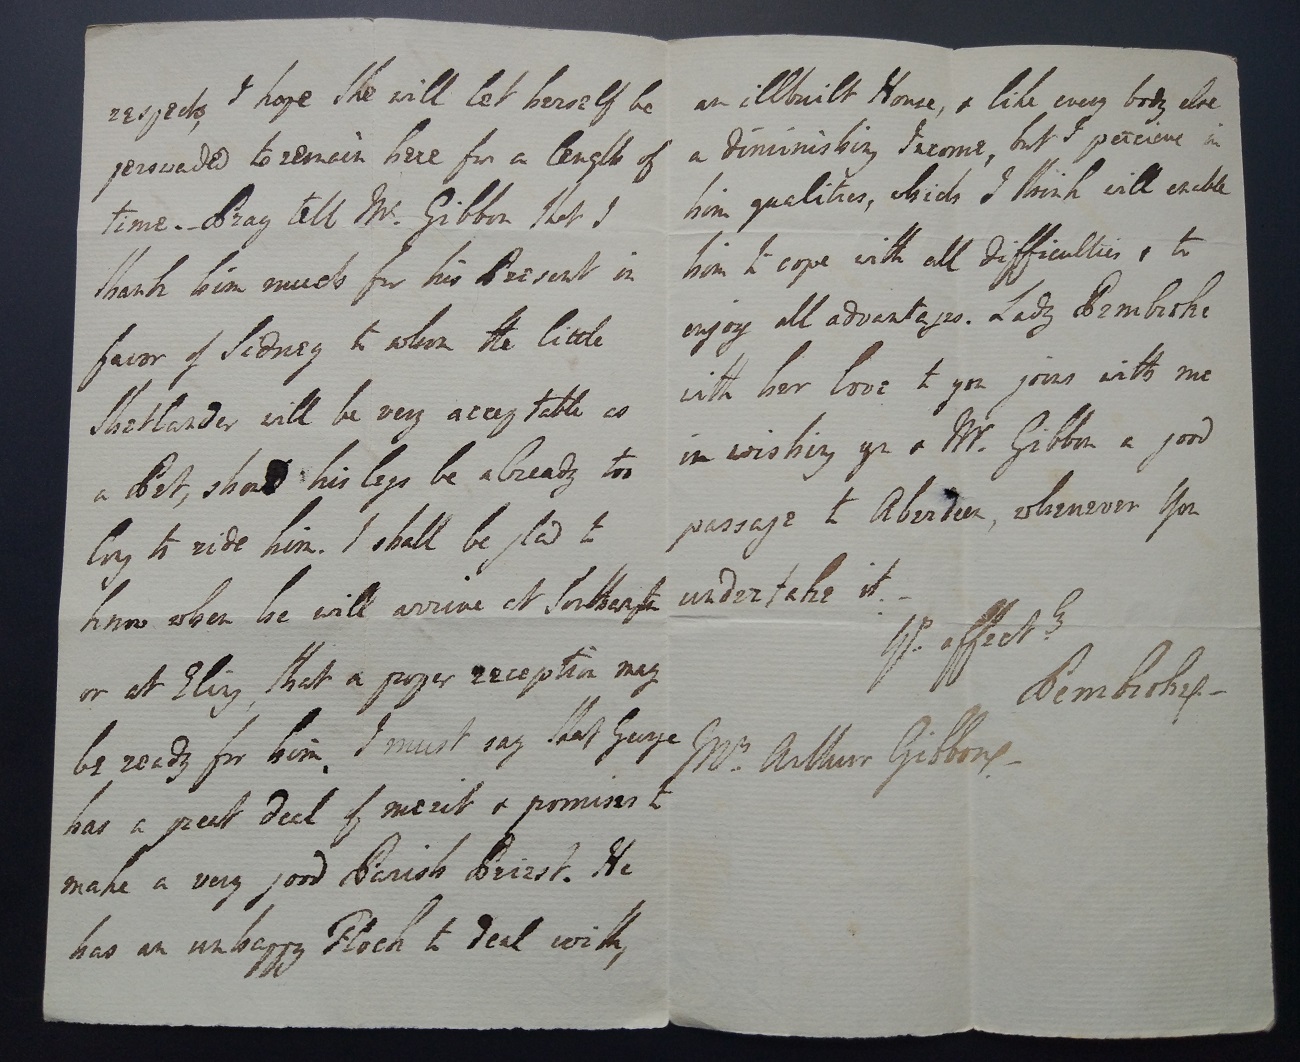 respects, I hope She will let herself be
perswaded to remain here for a length of
time. – Pray tell Mr. Gibbon that I
thank him much for his Present in
favor of Sidney to whom the little
Shetlander will be very acceptable as
a Pet, shou'd his legs be already too
long to ride him. I shall be glad to
know when he will arrive at Southampton
or at Eling, that a proper reception may
be ready for him. I must say that George
has a great deal of merit & promises to
make a very good Parish Priest. He
has an unhappy Flock to deal with,
an illbuilt House, & like every body else
a diminishing Income, but I percieve in
him qualities, which I think will enable
him to cope with all difficulties & to
enjoy all advantages. Lady Pembroke
with her love to you joins with me
in wishing you & Mr. Gibbon a good
passage to Aberdeen, whenever you
undertake it. –
Yr. affectly
Pembroke –
Mrs. Arthur Gibbon –